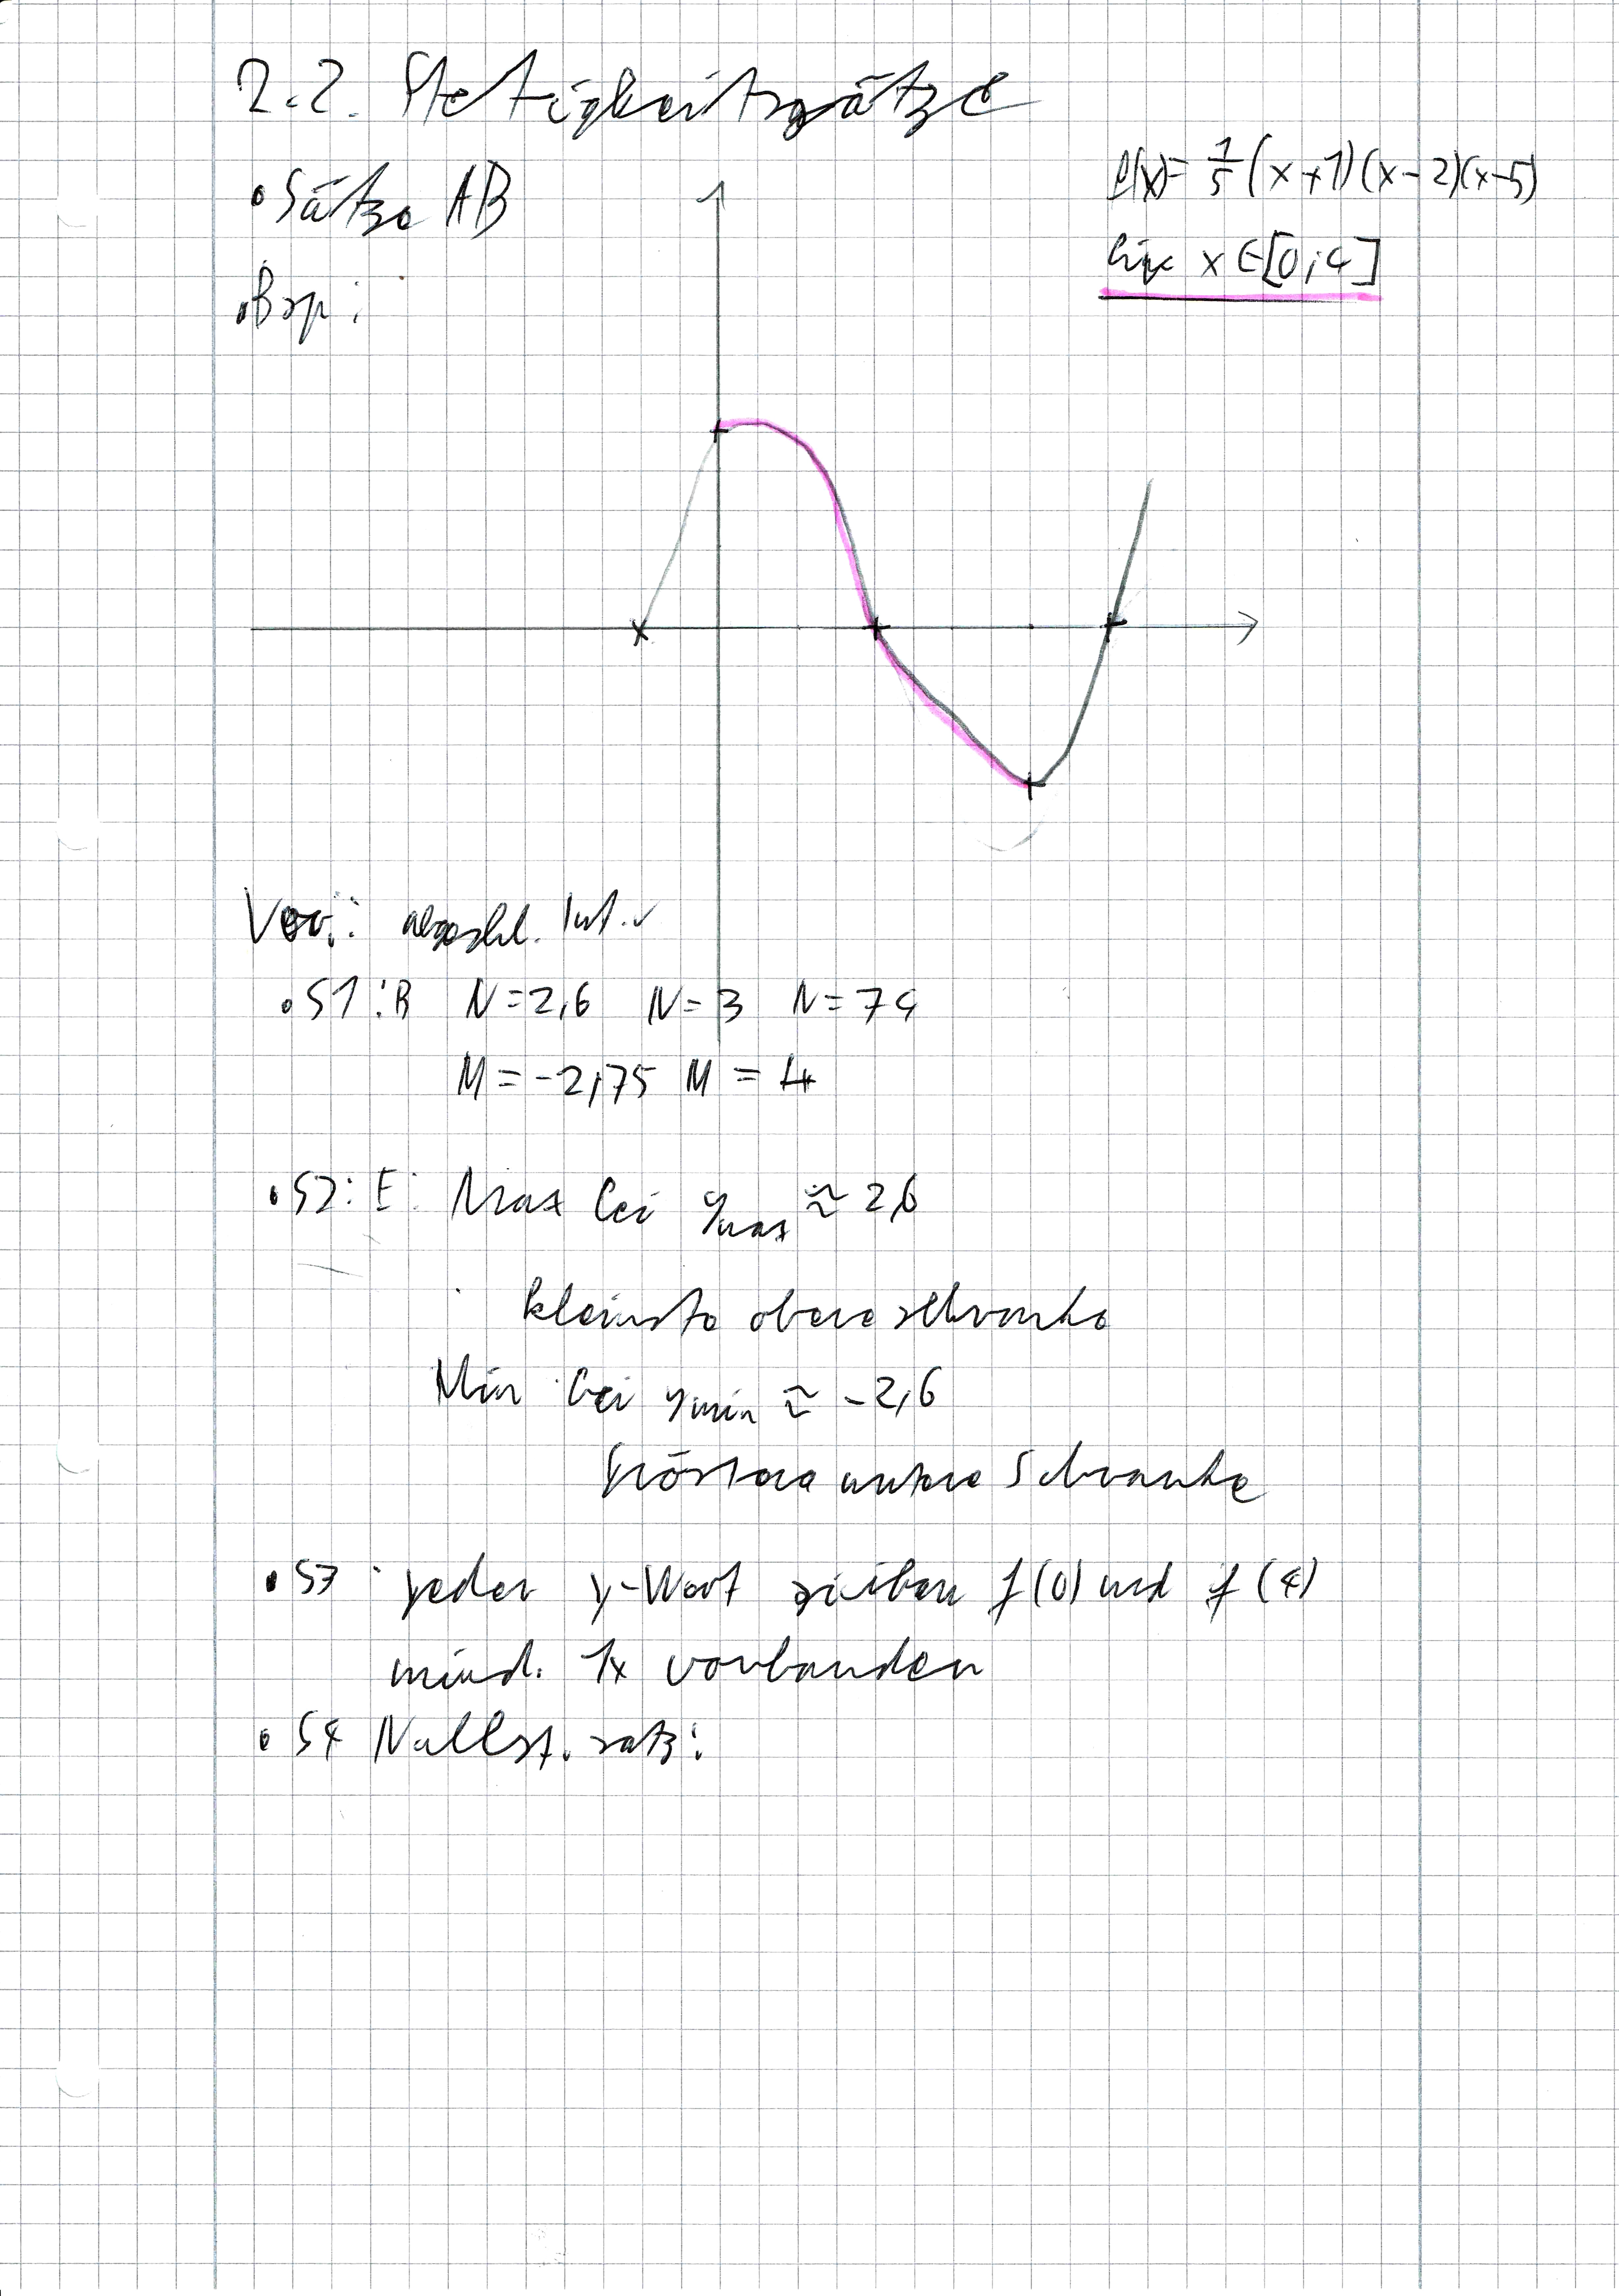 2.2. Stetigkeitssätze
• Sätze AB
f(x) = 1/5 (x+1)(x-2)(x-5)
für x ∈ [0;4]
• Bsp:
Vor.: abgeschl. Int. ✓
• S1: B N=2,6 N=3 N=74
M=-2,75 M=4
• S2: E: Max bei ymax ≈ 2,6
kleinste obere schranke
Min bei ymin ≈ -2,6
grösste untere Schranke
• S3 jeder y-Wert zwischen f(0) und f(4)
mind. 1x vorhanden
• S4 Nullst. satz: